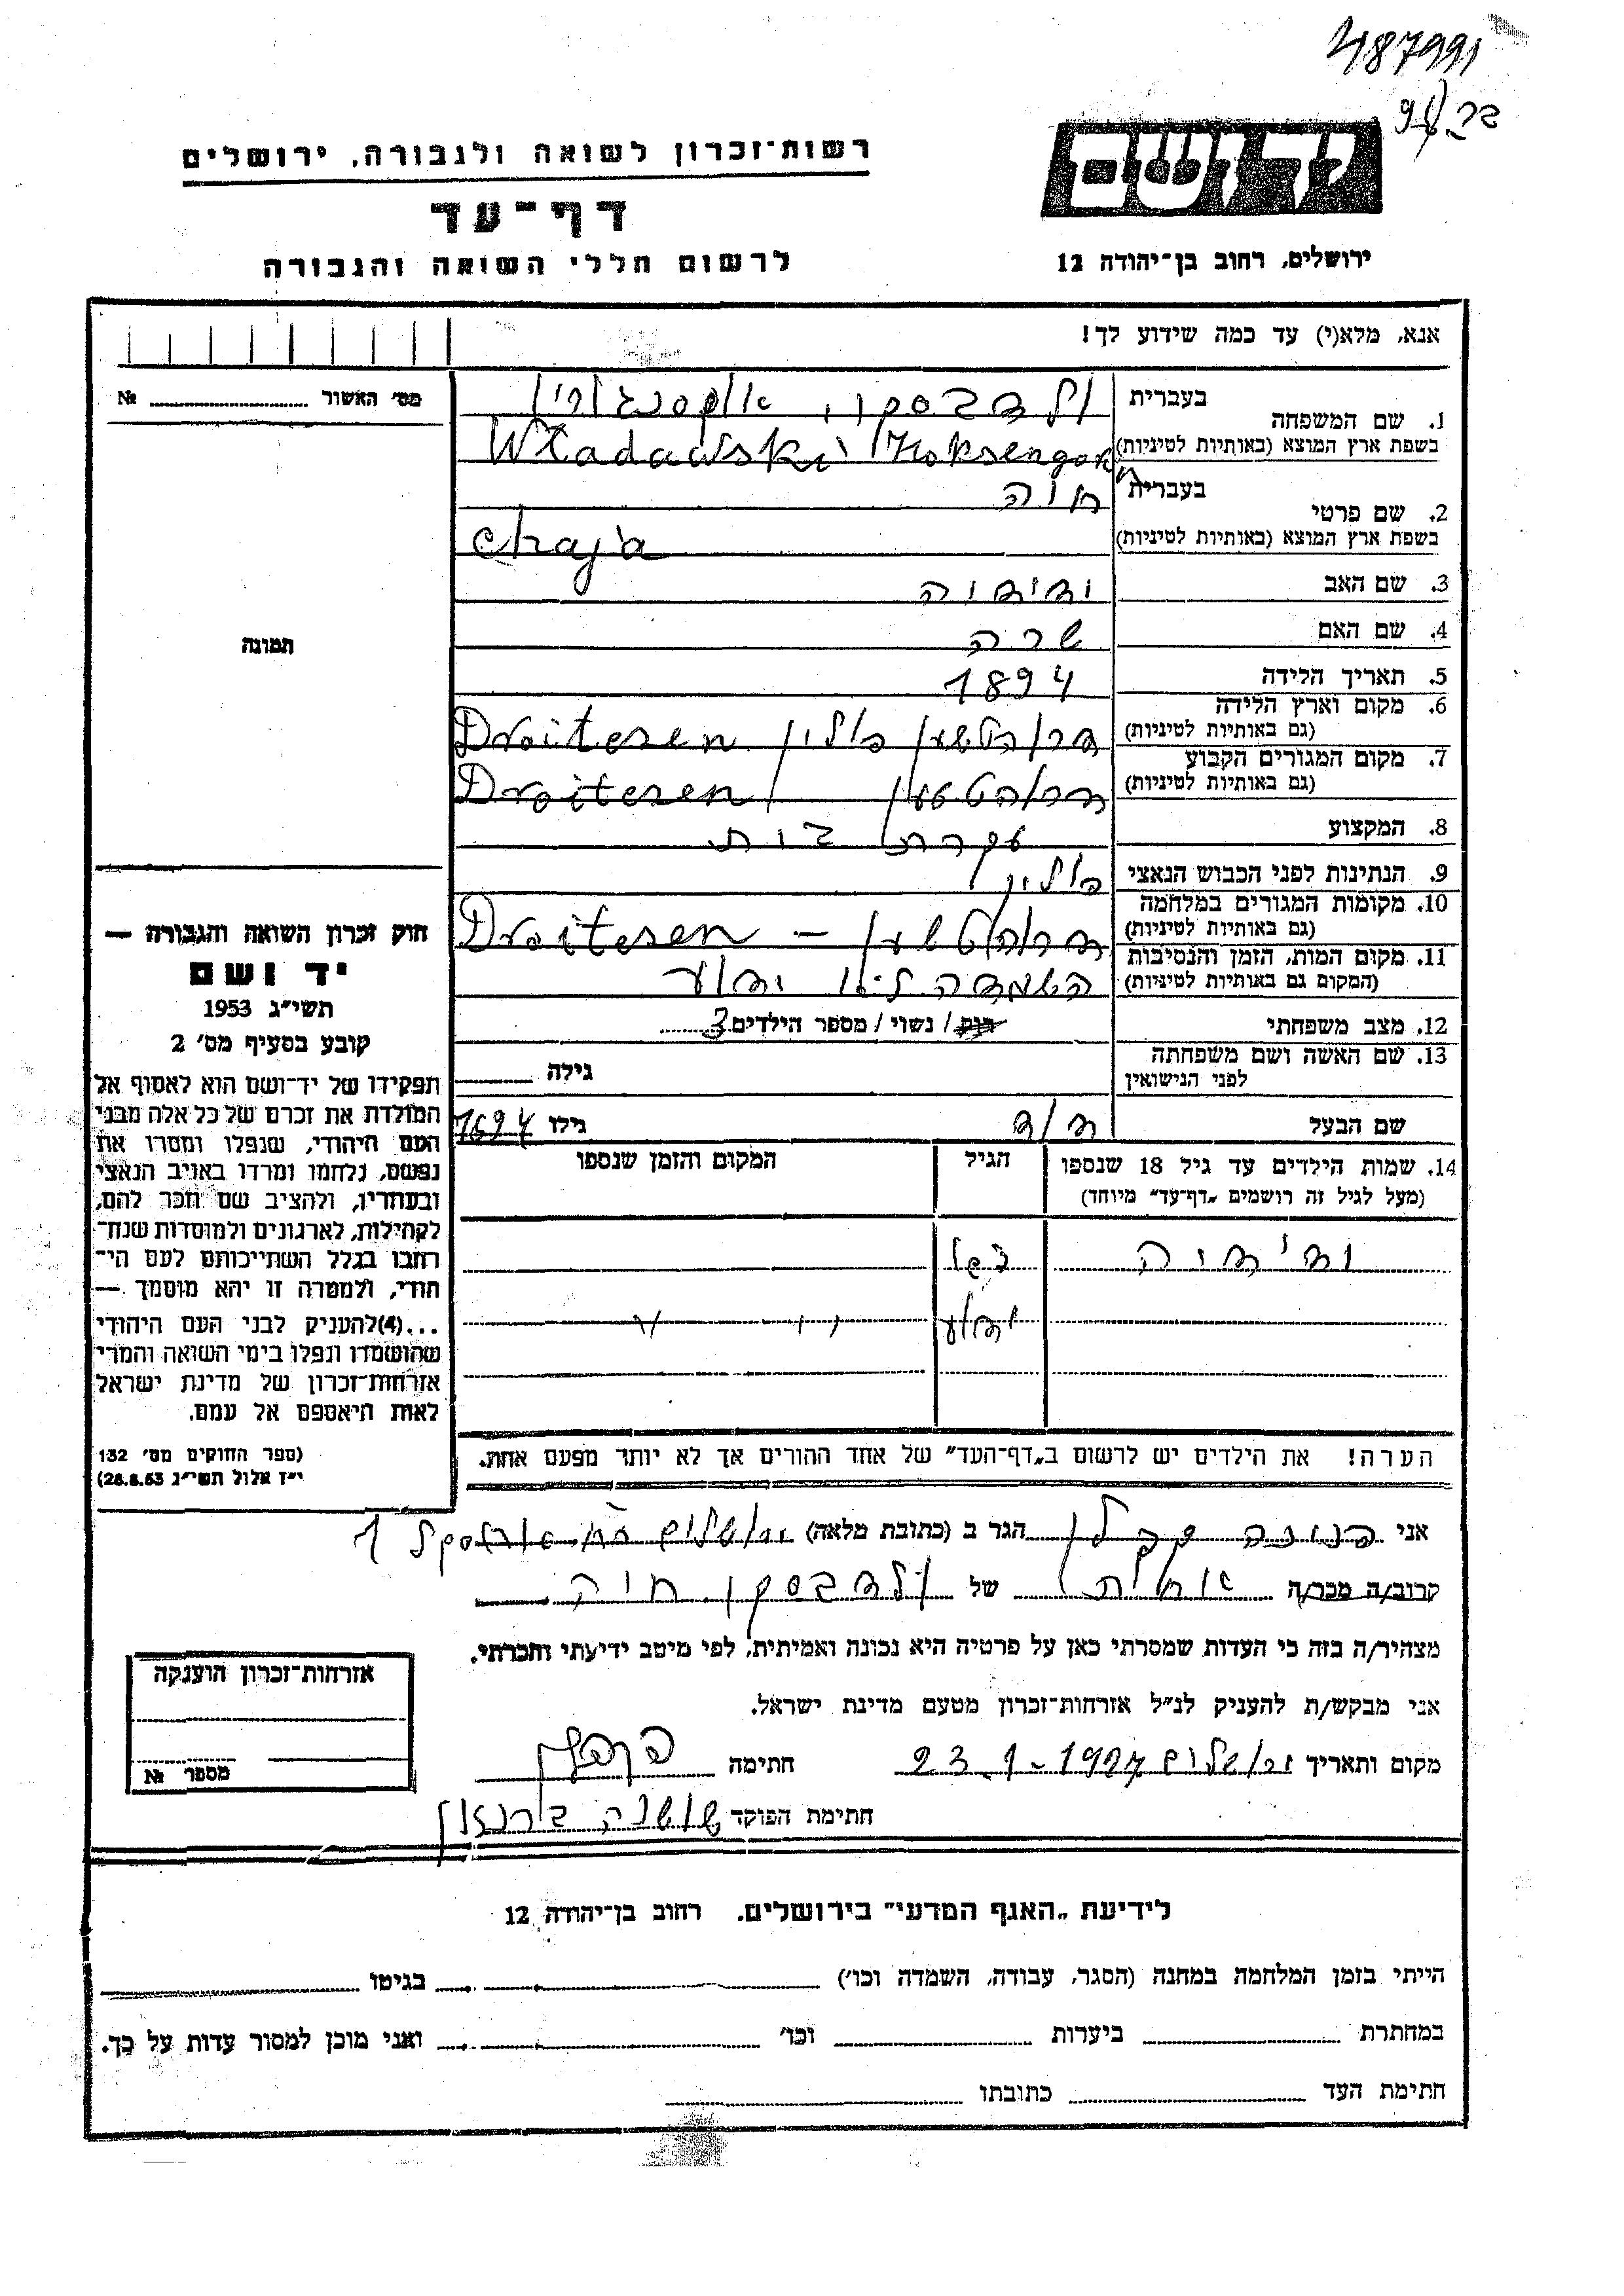 487991
רשות־זכרון לשואה ולגבורה, ירושלים
דף־עד
לרשום חללי השואה והגבורה
יד ושם
ירושלים, רחוב בן־יהודה 12
אנא, מלא(י) עד כמה שידוע לך!
מס׳ האשור №
1. שם המשפחה בעברית
בשפת ארץ המוצא (באותיות לטיניות) Władawski
2. שם פרטי בעברית חיה
בשפת ארץ המוצא (באותיות לטיניות) chaja
3. שם האב ירמיה
4. שם האם שרה
5. תאריך הלידה 1894
6. מקום וארץ הלידה
(גם באותיות לטיניות) פולין Droitesen
7. מקום המגורים הקבוע
(גם באותיות לטיניות) Droitesen
8. המקצוע עקרת בית
9. הנתינות לפני הכבוש הנאצי פולין
10. מקומות המגורים במלחמה
(גם באותיות לטיניות) Droitesen –
11. מקום המות, הזמן והנסיבות
(המקום גם באותיות לטיניות) השמדה לא ידוע
12. מצב משפחתי רוק / נשוי / מספר הילדים 3
13. שם האשה ושם משפחתה
לפני הנישואין גילה
שם הבעל דוד גילו
14. שמות הילדים עד גיל 18 שנספו
(מעל לגיל זה רושמים „דף־עד״ מיוחד) הגיל המקום והזמן שנספו
ירמיה
ידוע
הערה! את הילדים יש לרשום ב„דף־העד״ של אחד ההורים אך לא יותר מפעם אחת.
תמונה
חוק זכרון השואה והגבורה —
יד ושם
תשי״ג 1953
קובע בסעיף מס׳ 2
תפקידו של יד־ושם הוא לאסוף אל
המולדת את זכרם של כל אלה מבני
העם היהודי, שנפלו ומסרו את
נפשם, נלחמו ומרדו באויב הנאצי
ובעוזריו, ולהציב שם וזכר להם,
לקהילות, לארגונים ולמוסדות שנח־
רבו בגלל השתייכותם לעם הי־
הודי, ולמטרה זו יהא מוסמך —
...(4)להעניק לבני העם היהודי
שהושמדו ונפלו בימי השואה והמרי
אזרחות־זכרון של מדינת ישראל
לאות היאספם אל עמם.
(ספר החוקים מס׳ 132
י״ז אלול תשי״ג 28.8.53)
אני קפלן הגר ב (כתובת מלאה) ירושלים 1
קרוב/ה מכר/ה אחות של ולדבסקי חיה
מצהיר/ה בזה כי העדות שמסרתי כאן על פרטיה היא נכונה ואמיתית, לפי מיטב ידיעתי והכרתי.
אני מבקש/ת להעניק לנ״ל אזרחות־זכרון מטעם מדינת ישראל.
מקום ותאריך ירושלים חתימה
חתימת הפוקד שושנה
אזרחות־זכרון הוענקה
מספר №
לידיעת „האגף המדעי״ בירושלים. רחוב בן־יהודה 12
הייתי בזמן המלחמה במחנה (הסגר, עבודה, השמדה וכו׳) בגיטו
במחתרת ביערות וכו׳ ואני מוכן למסור עדות על כך.
חתימת העד כתובתו